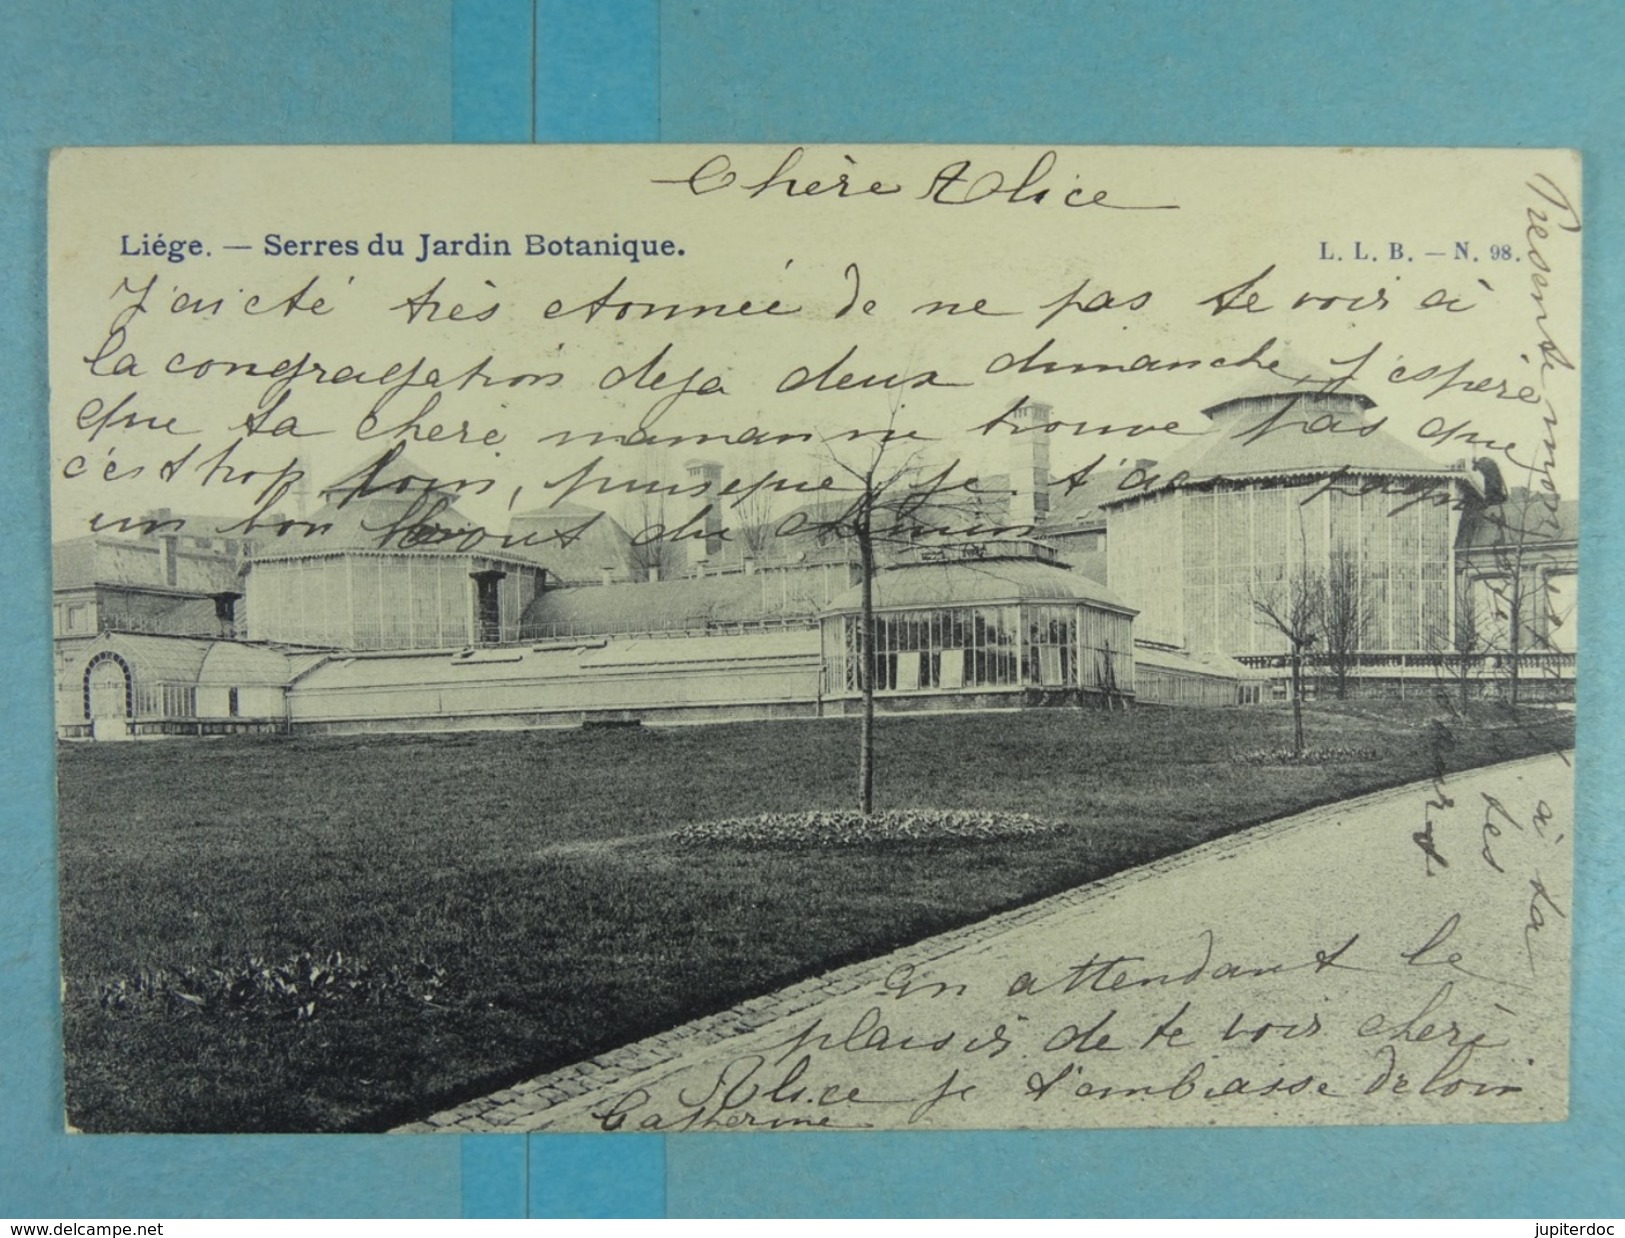 Chère Alice
Liége. — Serres du Jardin Botanique.
L. L. B. — N. 98.
J'ai été très etonnée de ne pas te voir à
la congragation deja deux dimanche, j'espère
que ta chere maman ne trouve pas que
c'est trop loin, puisque je t'ai
un bon bout du chemin
Presente mes
à ta
des
En attendant le
plaisir de te voir cheré
Alice je t'embrasse de loin
Catherine
www.delcampe.net
jupiterdoc